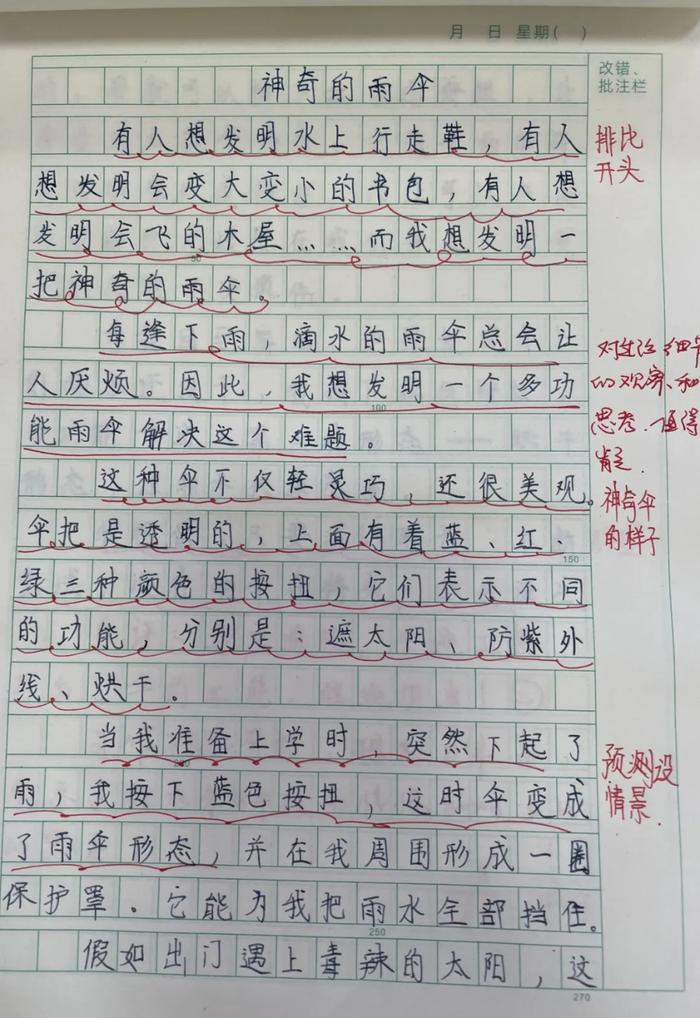 月 日 星期( )
改错、
批注栏
神奇的雨伞
有人想发明水上行走鞋，有人
想发明会变大变小的书包，有人想
发明会飞的木屋……而我想发明一
把神奇的雨伞。
排比
开头
每逢下雨，滴水的雨伞总会让
人厌烦。因此，我想发明一个多功
能雨伞解决这个难题。
对生活细
的观察、和
思考.值得
肯定.
这种伞不仅轻灵巧，还很美观。
伞把是透明的，上面有着蓝、红、
绿三种颜色的按扭，它们表示不同
的功能，分别是：遮太阳、防紫外
线、烘干。
神奇伞
的样子
当我准备上学时，突然下起了
雨，我按下蓝色按扭，这时伞变成
了雨伞形态，并在我周围形成一圈
保护罩。它能为我把雨水全部挡住。
预测设
情景.
假如出门遇上毒辣的太阳，这
50
100
150
250
270